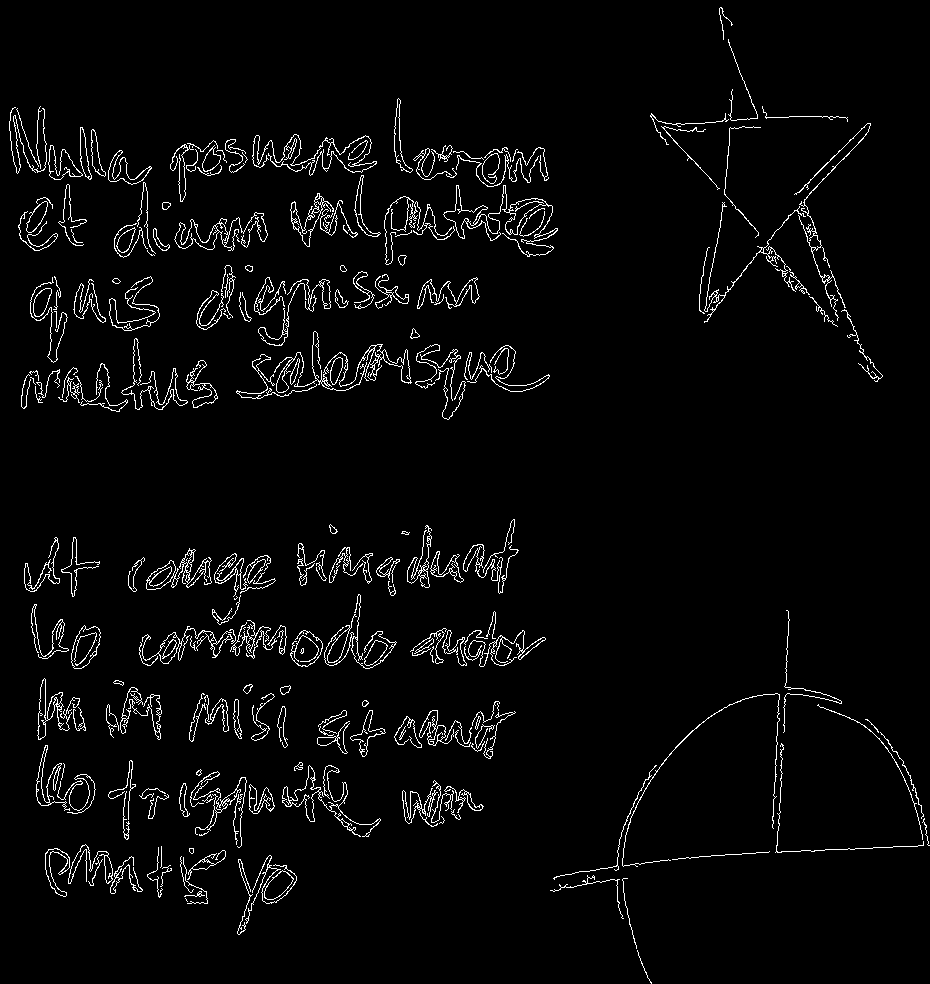 Nulla posuere lorem
et diam vulputate
quis dignissim
metus scelerisque
Ut conge tincidunt
leo commodo auctor
In in nisi sit amet
leo tristique non